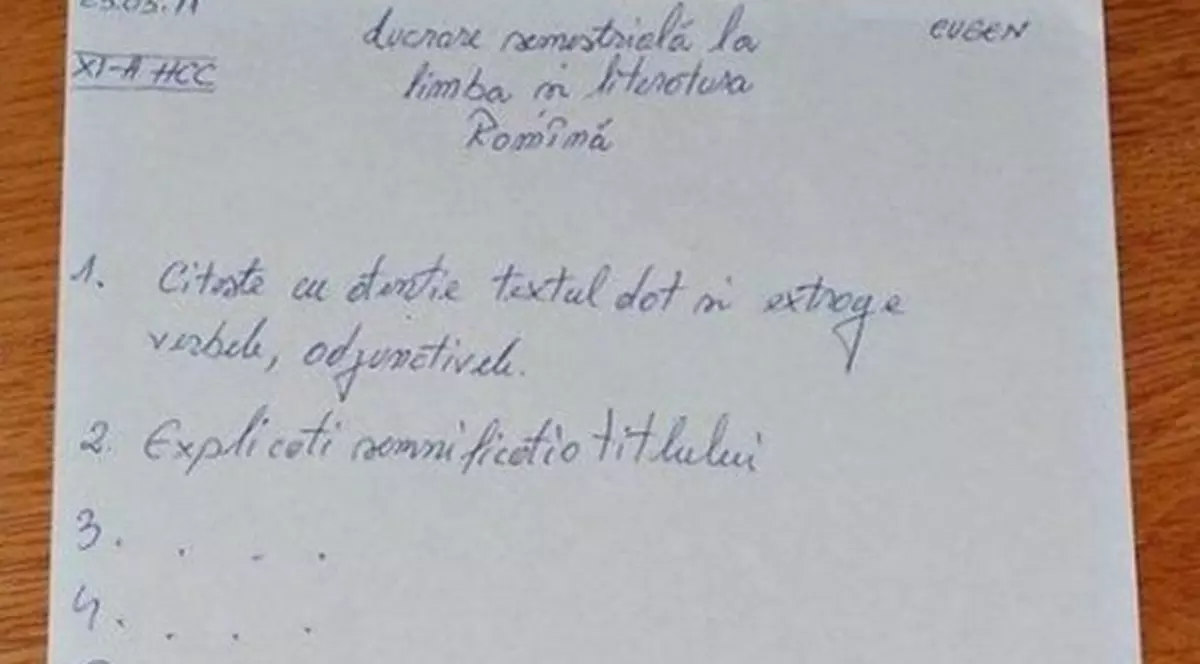 23.05.11
EUGEN
XI-A HCC
Lucrare semestrială la
limba și literatura
Romînă
1. Citeste cu atenție textul dat si extrage
verbele, adjunctivele.
2. Explicati semnificatia titlului
3. . . .
4. . . .